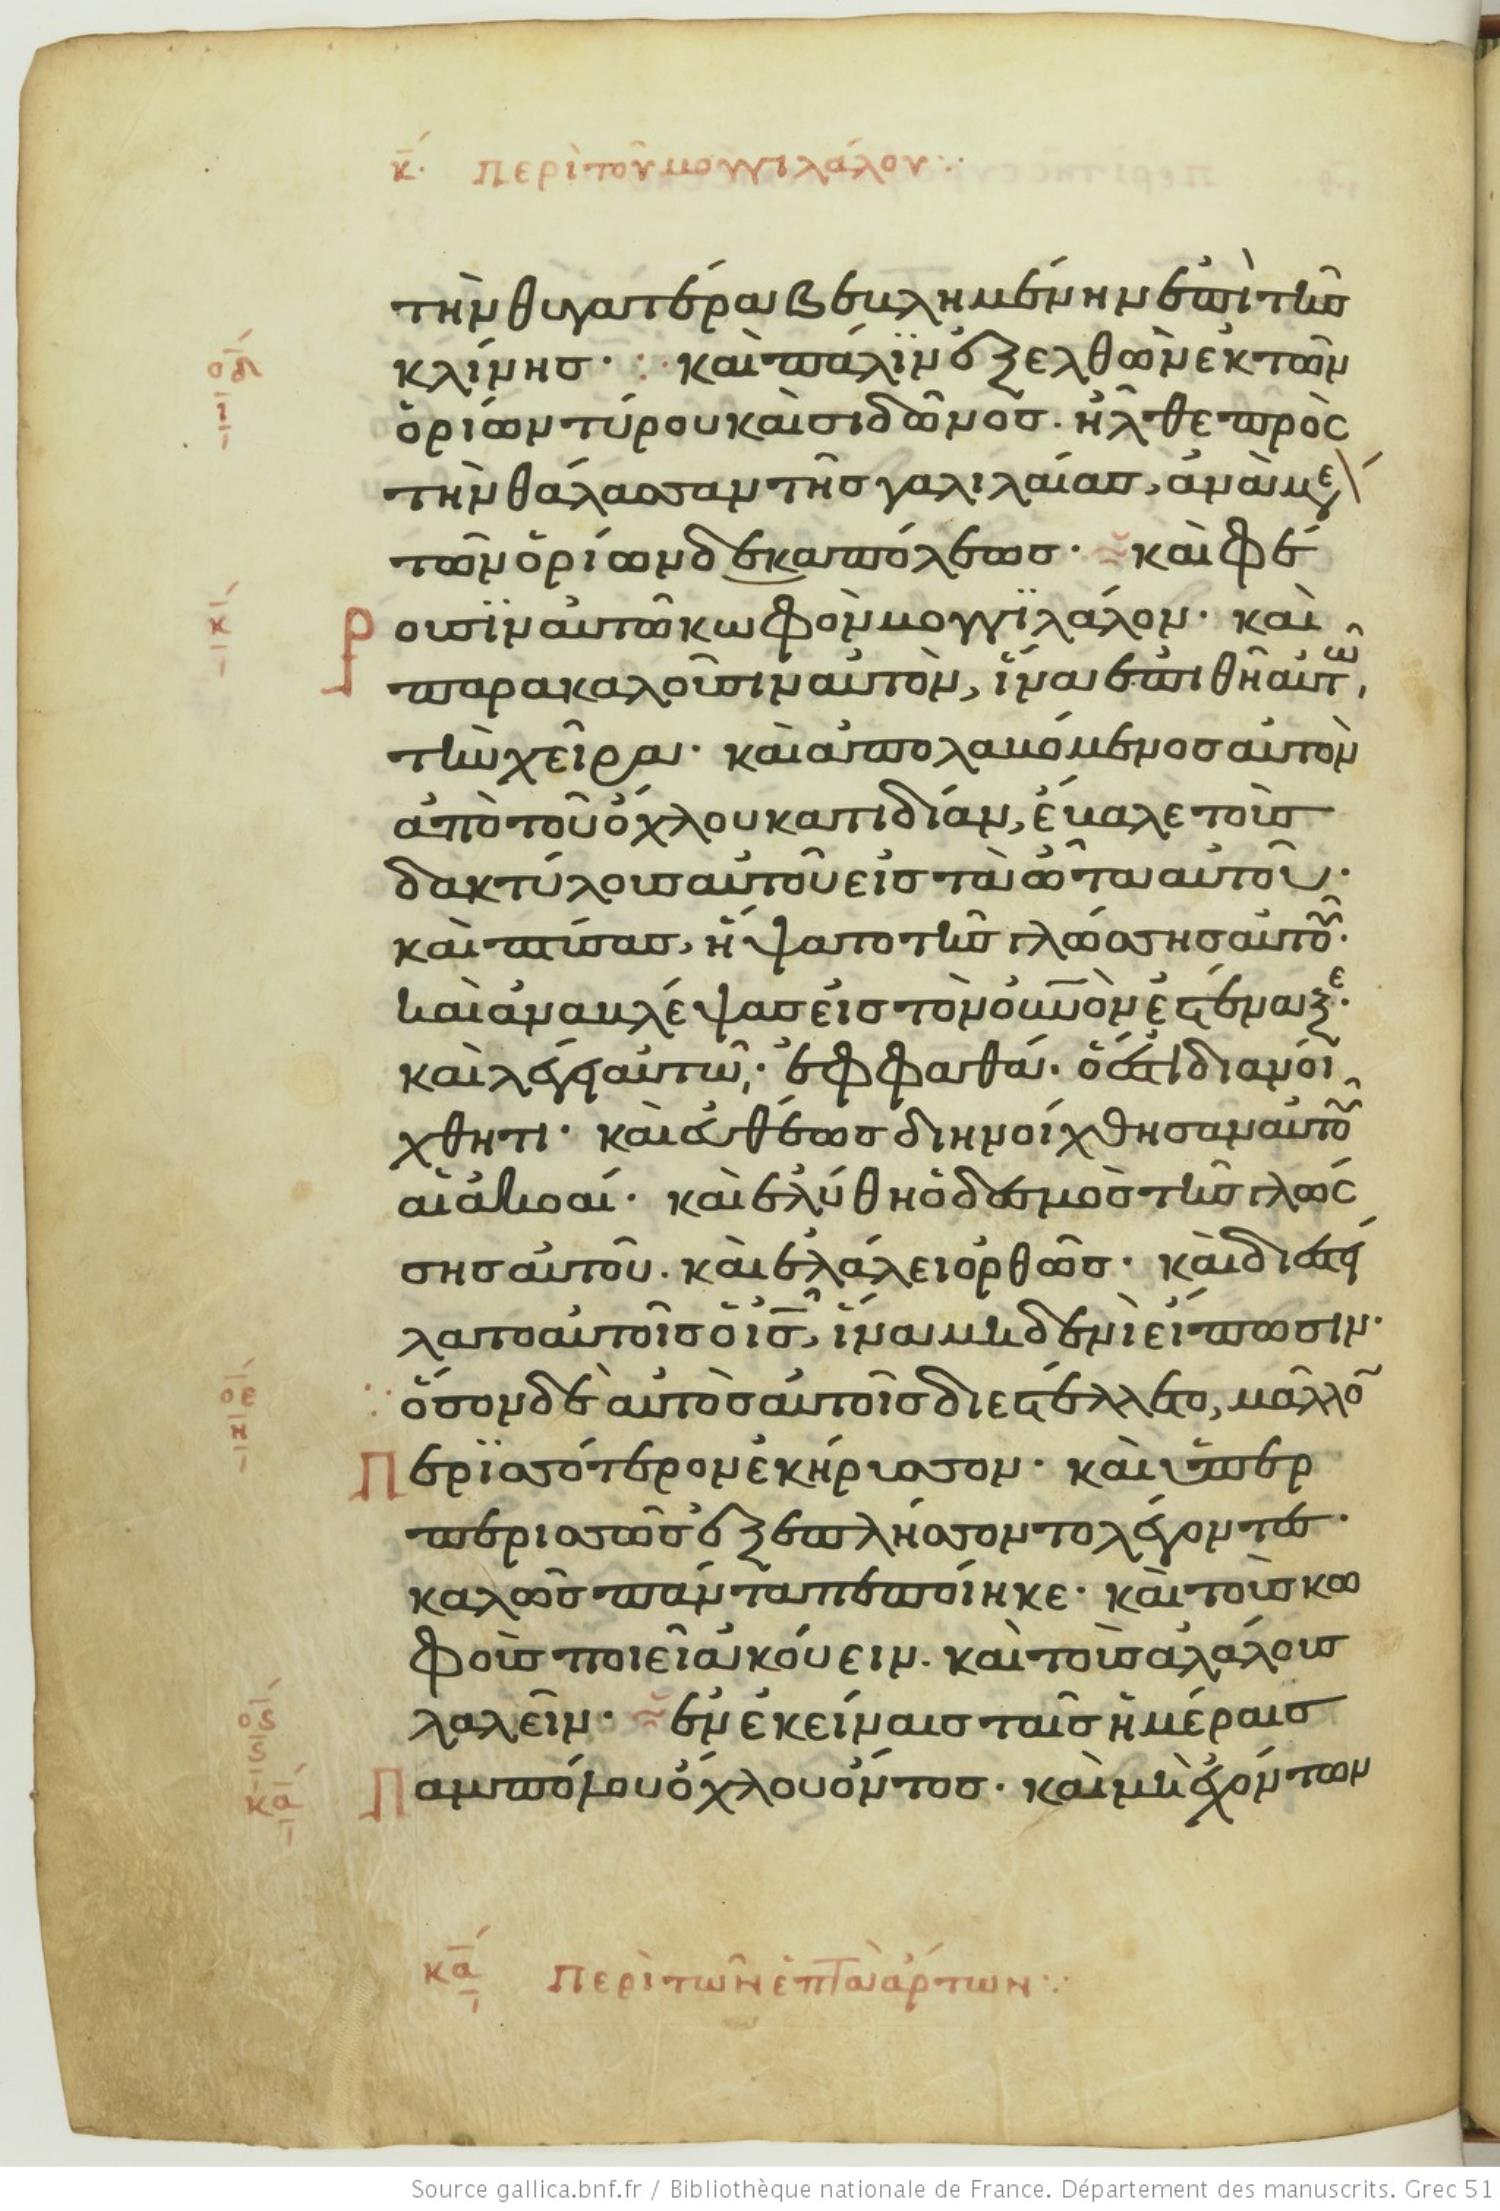 κ̅. περὶ τοῦ μογγιλάλου
τὴν θυγατέρα βεβλημένην ἐπὶ τῆς
κλίνης· καὶ πάλϊν ἐξελθὼν ἐκ τῶν
ὁρίων τύρου καὶ σιδῶνος. ἦλθε πρὸς
τὴν θάλασσαν τῆς γαλιλαίας, ἀνὰ με
τῶν ὁρίων δεκαπόλεως· καὶ φέ
ρουσϊν αὐτῶ κωφὸν μογγϊλάλον· καὶ
παρακαλοῦσιν αὐτὸν, ἵνα ἐπιθῆ αὐτῶ,
τὴν χεῖρα· καὶ ἀπολαβόμενος αὐτὸν
ἀπὸ τοῦ ὄχλου κατιδίαν, ἔβαλε τοὺς
δακτύλους αὐτοῦ εἰς τὰ ὦτα αὐτοῦ·
καὶ πτύσας, ἥψατο τῆς γλώσσης αὐτοῦ·
καὶ ἀναβλέψας εἰς τὸν οὐνὸν ἐστέναξε·
καὶ λέγει αὐτῶ,· ἐφφαθά· ὅ ἐστι διανοί
χθητι· καὶ εὐθέως διηνοίχθησαν αὐτοῦ
αἱ ἀκοαί· καὶ ἐλύθη ὁ δεσμὸς τῆς γλώσ
σης αὐτοῦ. καὶ ἐλάλει ὀρθῶς· καὶ διεστεί
λατο αὐτοῖς ὁ ις̅, ἵνα μηδενὶ εἴπωσιν·
ὅσον δὲ αὐτὸς αὐτοῖς διεστέλλετο, μᾶλλο
περϊσσότερον ἐκήρυσσον· καὶ ὑπερ
περισσῶς ἐξεπλήσσοντο λέγοντες·
καλῶς πάντα πεποίηκε· καὶ τοὺς κω
φοὺς ποιεῖ ἀκούειν. καὶ τοὺς ἀλάλους
λαλεῖν· ἐν ἐκείναις ταῖς ἡμέραις
παμπόλου ὄχλου ὄντος· καὶ μὴ ἐχόντων
κα̅ περὶ τῶν ἑπτὰ ἄρτων
Source gallica.bnf.fr / Bibliothèque nationale de France. Département des manuscrits. Grec 51